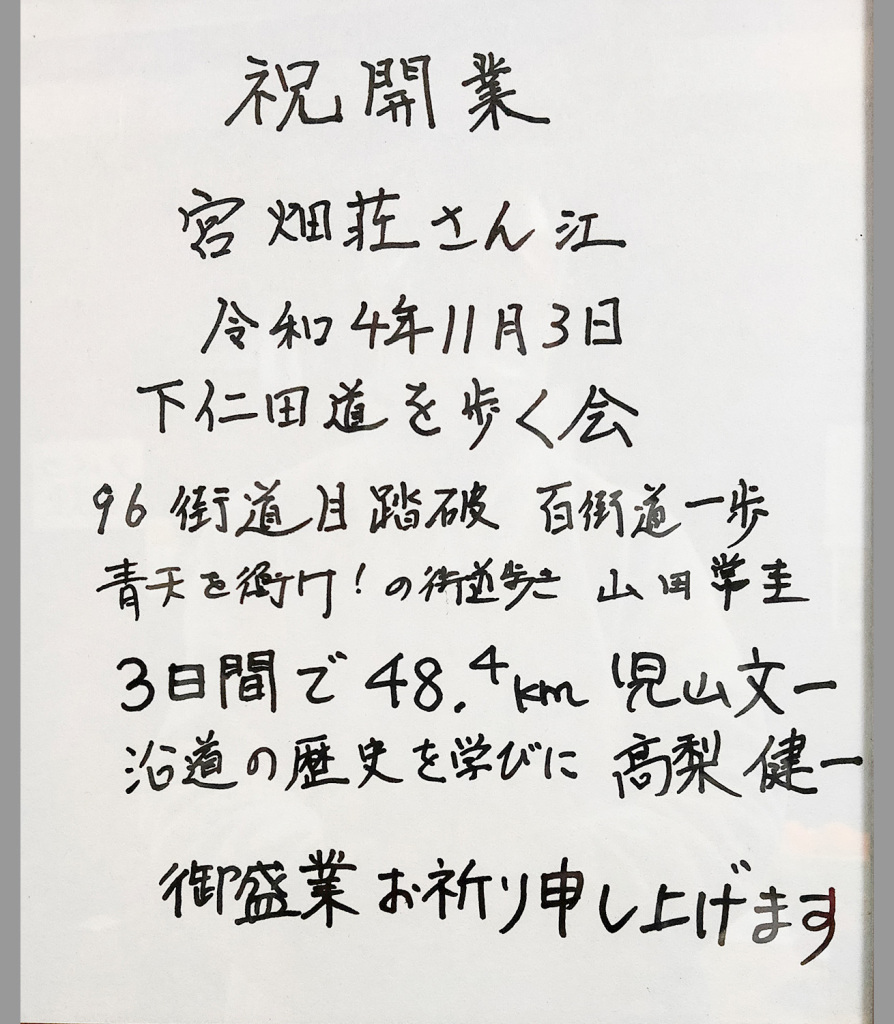 祝開業
宮畑荘さん江
令和4年11月3日
下仁田道を歩く会
96街道目踏破 百街道一歩
青天を衝け!の街道歩き 山田常圭
3日間で48.4km 児山文一
沿道の歴史を学びに 高梨健一
御盛業お祈り申し上げます